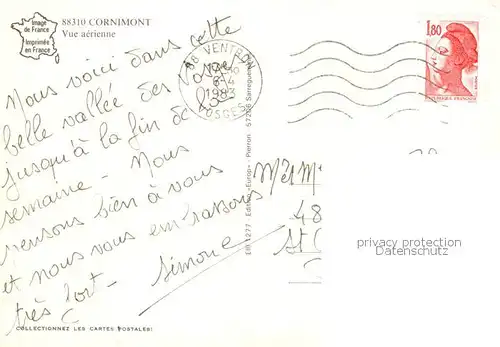 Image
de France
Imprimée
en France
88310 CORNIMONT
Vue aérienne
Nous voici dans cette
belle vallée des Vosges
jusqu'à la fin de la
semaine - Nous
pensons bien à vous
et nous vous embrassons
très fort -
Simone
COLLECTIONNEZ LES CARTES POSTALES!
88 VENTRON
6-4
1983
VOSGES
1,80
EM 1277 - Editions «Europ» - Pierron - 57206 Sarreguemines
M et M
48
St
privacy protection
Datenschutz